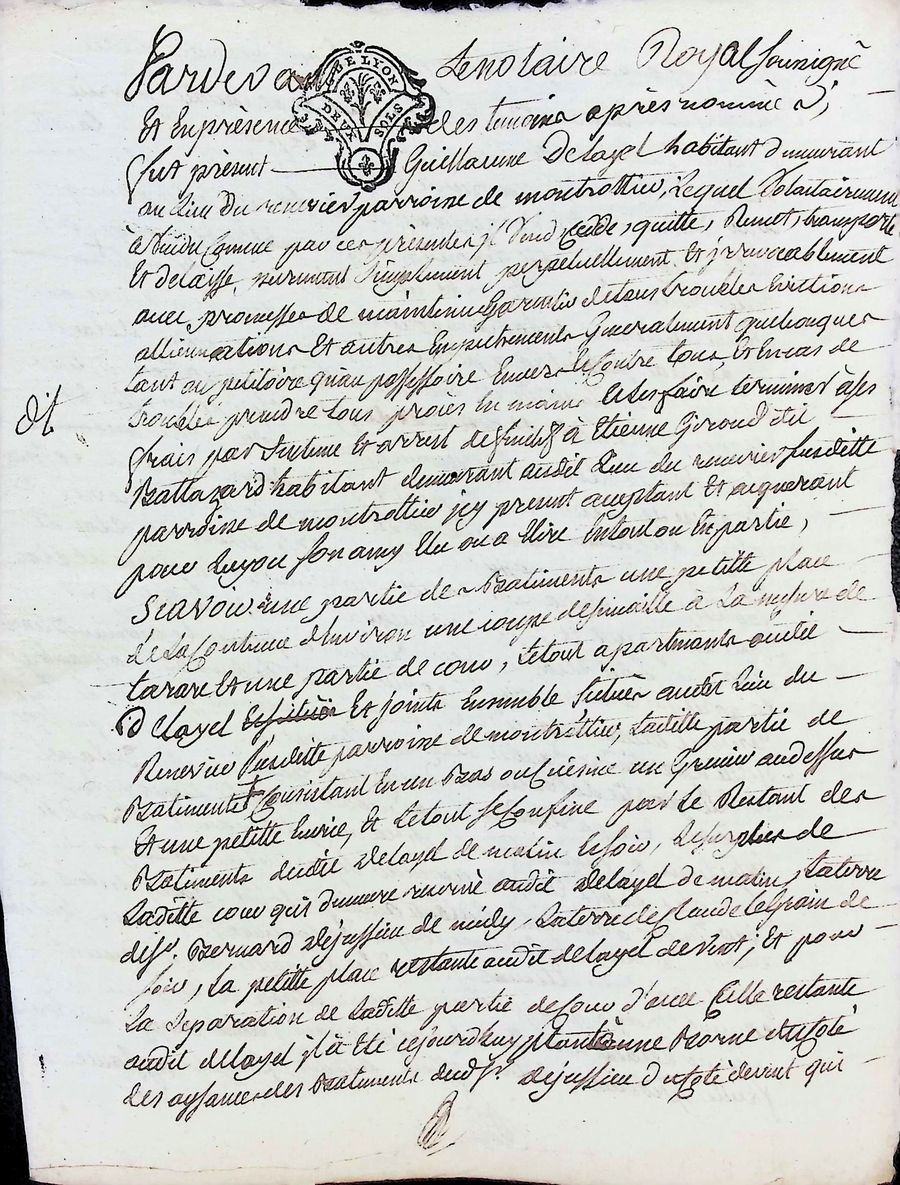 Pardevant Le notaire Royal Soussigné
DE LYON
DEUX SOLS
Et En présence des temoins après nommés,
fut présent Guillaume Delayel habitant demeurant
au Lieu du renevier parroisse de montrottier, Lequel volontairement
à vendu Comme par ces présentes jl Vend, Cedde, quitte, Remet, transporte
Et delaisse, purement Simplement perpetuellement Et jrrevocablement
avec promesses de maintenir Garentir de tous troubles Evictions
allienations Et autres Empechements Generalement quelconques
tant au petitoire qu'au possessoire Envers Et Contre tous, Et En cas de
troubles prendre tous procès En main Et les faire terminer à ses
frais par Sentence Et arrest deffinitifs à Etienne Giroud dit
Baltazard habitant demeurant audit Lieu du renevier susditte
dit
parroisse de montrottier jcy present acceptant Et acquerant
pour Luy ou son amy Elu ou a Elire En tout ou En partie,
Scavoir une partie de Batiments une petitte place
de La Contenue d'Environ une coupe de semaille à La mesure de
tarare Et une partie de cour, Le tout apartenants audit
Delayel Et joints Ensemble Situés audit Lieu du
Renevier Susditte parroisse de montrottier, Laditte partie de
Batiments Consistant En un Bas ou Cuisine un Grenier au dessus
Et une petitte Ecurie, Et Le tout Se Confine par Le Restant des
Batiments dudit Delayel de matin Et soir, Le surplus de
Laditte cour qui demeure reservé audit Delayel de matin, La terre
de Sr. Bernard Dejussieu de midy, La terre de Claude Legrain de
soir, La petitte place restante audit delayel de vent; Et pour
La Separation de Laditte partie de Cour d'avec Celle restante
audit delayel jl à Eté cejourd'huy planté une Borne du Coté
des aysances des Batiments dudt Sr. dejussieu du Coté de vent qui